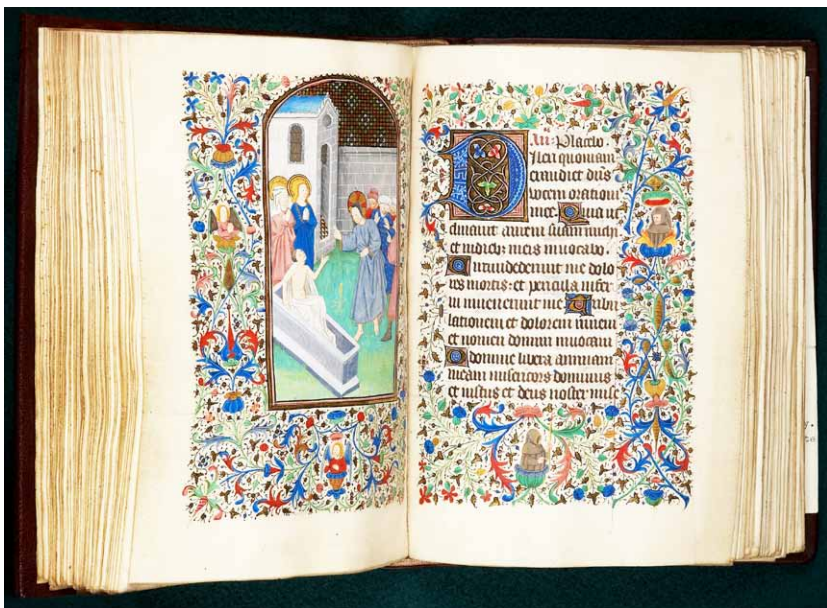 Añ. Placebo.
Dilexi quoniam
exaudiet dñs
vocem orationis
mee. Quia in
clinauit aurem suam michi
et in diebȝ meis inuocabo.
Circumdederunt me dolo
res mortis: et pericula infer
ni inuenerunt me Tribu
lationem et dolorem inueni
et nomen domini inuocaui
O domine libera animam
meam misericors dominus
et iustus et deus noster mise